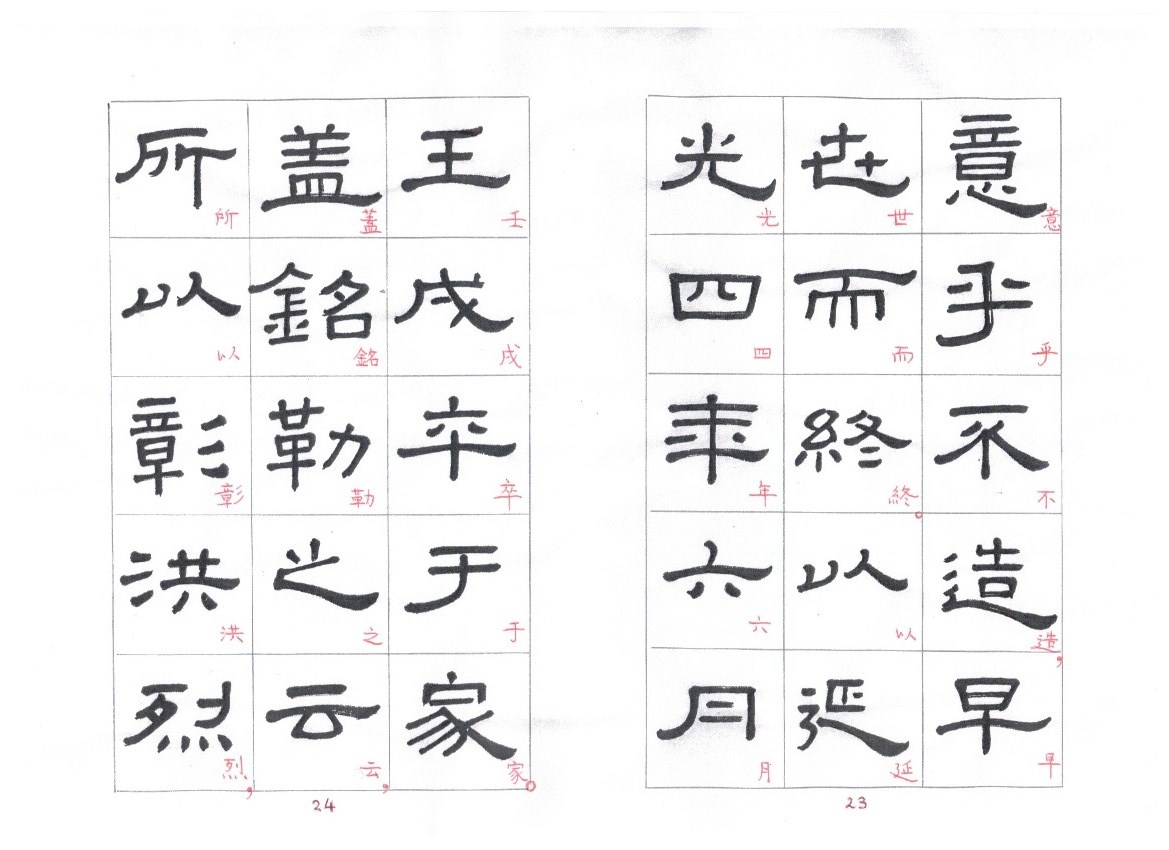 意乎不造早
意乎不造，早
世而終以延
世而終。以延
光四年六月
光四年六月
23
壬戌卒于家
壬戌卒于家。
盖銘勒之云
蓋銘勒之云，
所以彰洪烈
所以彰洪烈，
24